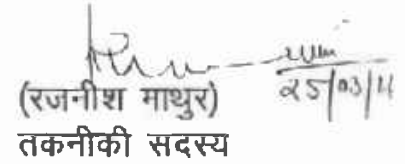 25/03/11
(रजनीश माथुर)
तकनीकी सदस्य